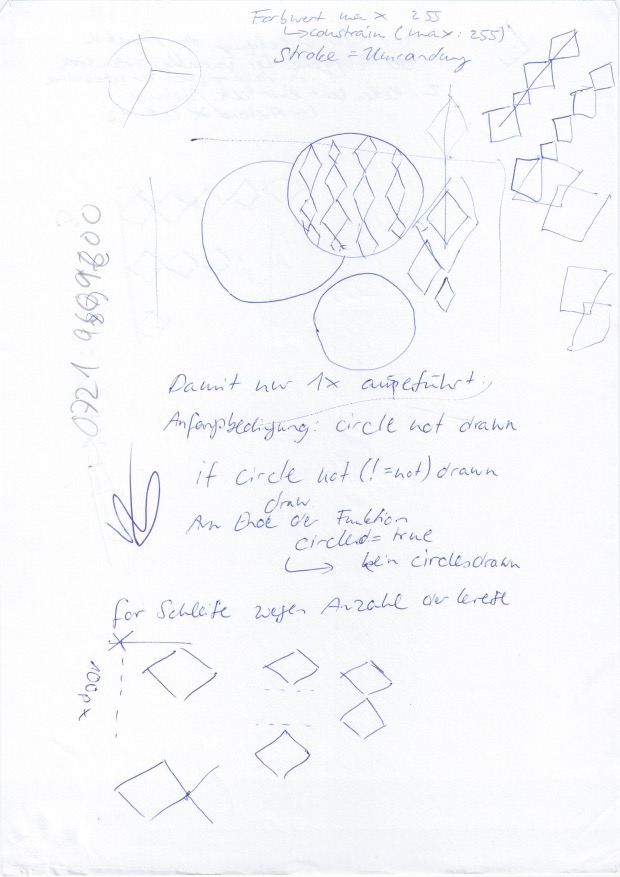 Farbwert max 255
↳ constrain (max: 255)
Stroke = Umrandung
Damit nur 1x ausgeführt:
Anfangsbedingung: circle not drawn
if circle not (! = not) drawn
draw
Am Ende der Funktion
= true
kein circlesdrawn
for Schleife wegen Anzahl der Kreise
100px